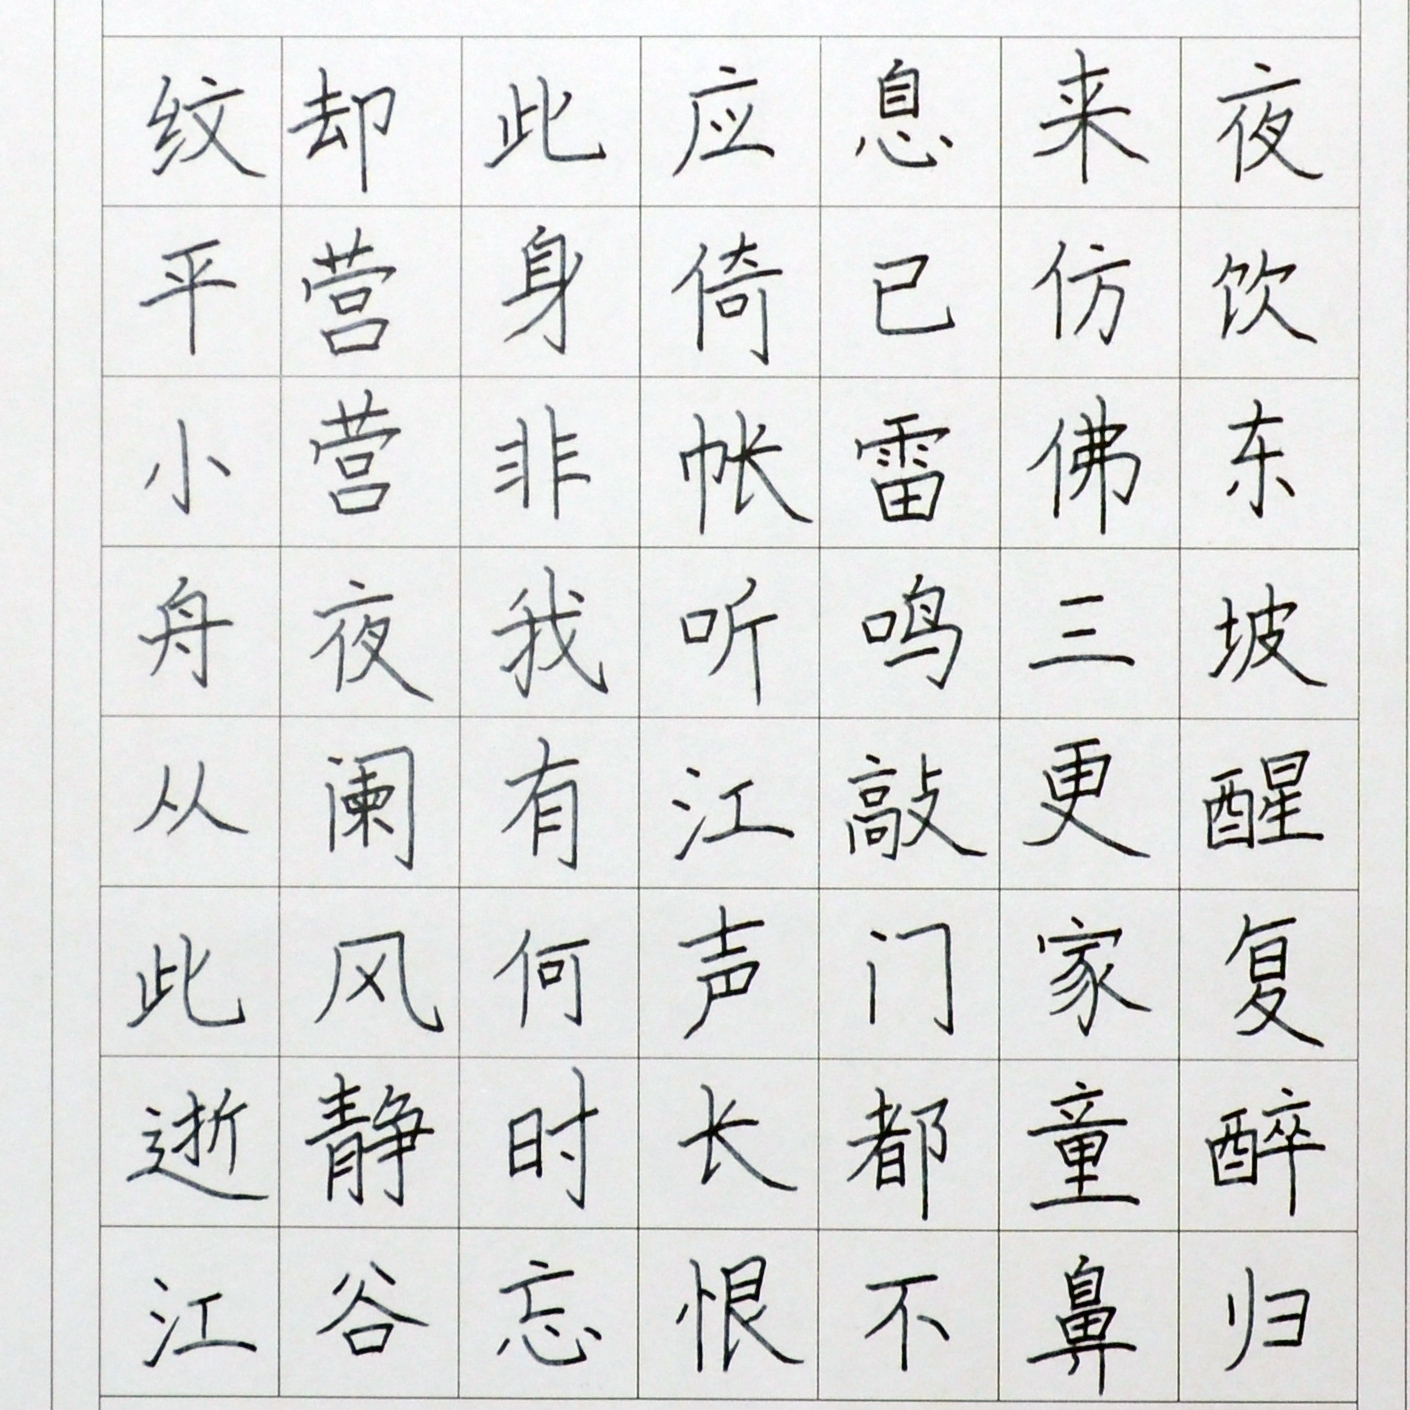 夜饮东坡醒复醉归
来仿佛三更家童鼻
息已雷鸣敲门都不
应倚帐听江声长恨
此身非我有何时忘
却营营夜阑风静谷
纹平小舟从此逝江